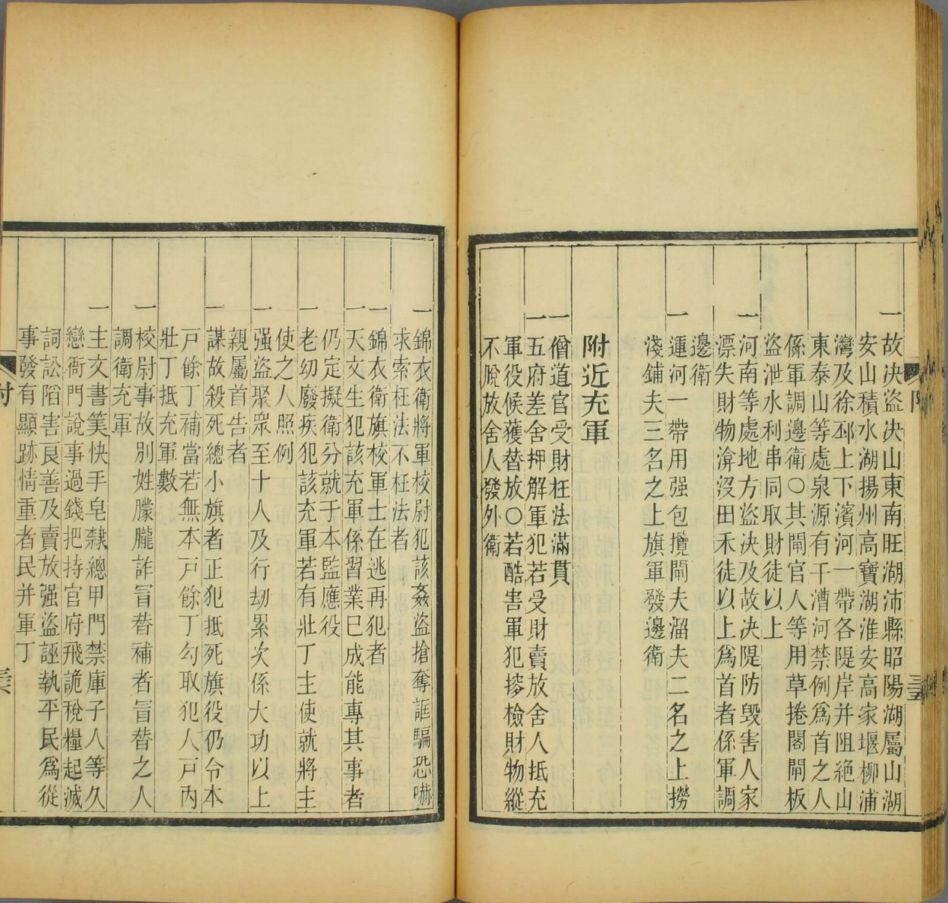 一故決盜決山東南旺湖沛縣昭陽湖屬山湖
安山積水湖揚州高寶湖淮安高家堰柳浦
灣及徐邳上下濱河一帶各隄岸并阻絶山
東泰山等處泉源有干漕河禁例爲首之人
係軍調邊衛〇其閘官人等用草捲閣閘板
盜泄水利串同取財徒以上
一河南等處地方盜決及故決隄防毁害人家
漂失財物渰没田禾徒以上爲首者係軍調
邊衛
一運河一帶用强包攬閘夫溜夫二名之上撈
淺鋪夫三名之上旗軍發邊衛
附近充軍
一僧道官受財枉法滿貫
一五府差舍押解軍犯若受財賣放舍人抵充
軍役候獲替放〇若酷害軍犯搜檢財物縱
不脫放舍人發外衛
一錦衣衛將軍校尉犯該姦盜搶奪誆騙恐嚇
求索枉法不枉法者
一錦衣衛旗校軍士在逃再犯者
一天文生犯該充軍係習業已成能專其事者
仍定擬衛分就于本監應役
一老幼廢疾犯該充軍若有壯丁主使就將主
使之人照例
一强盜聚眾至十人及行劫累次係大功以上
親屬首告者
一謀故殺死總小旗者正犯抵死旗役仍令本
戸餘丁補當若無本戸餘丁勾取犯人戸內
壯丁抵充軍數
一校尉事故別姓朦朧詐冒替補者冒替之人
調衛充軍
一主文書筭快手皂隸總甲門禁庫子人等久
戀衙門說事過錢把持官府飛詭稅糧起滅
詞訟陷害良善及賣放强盜誣執平民爲從
事發有顯跡情重者民并軍丁